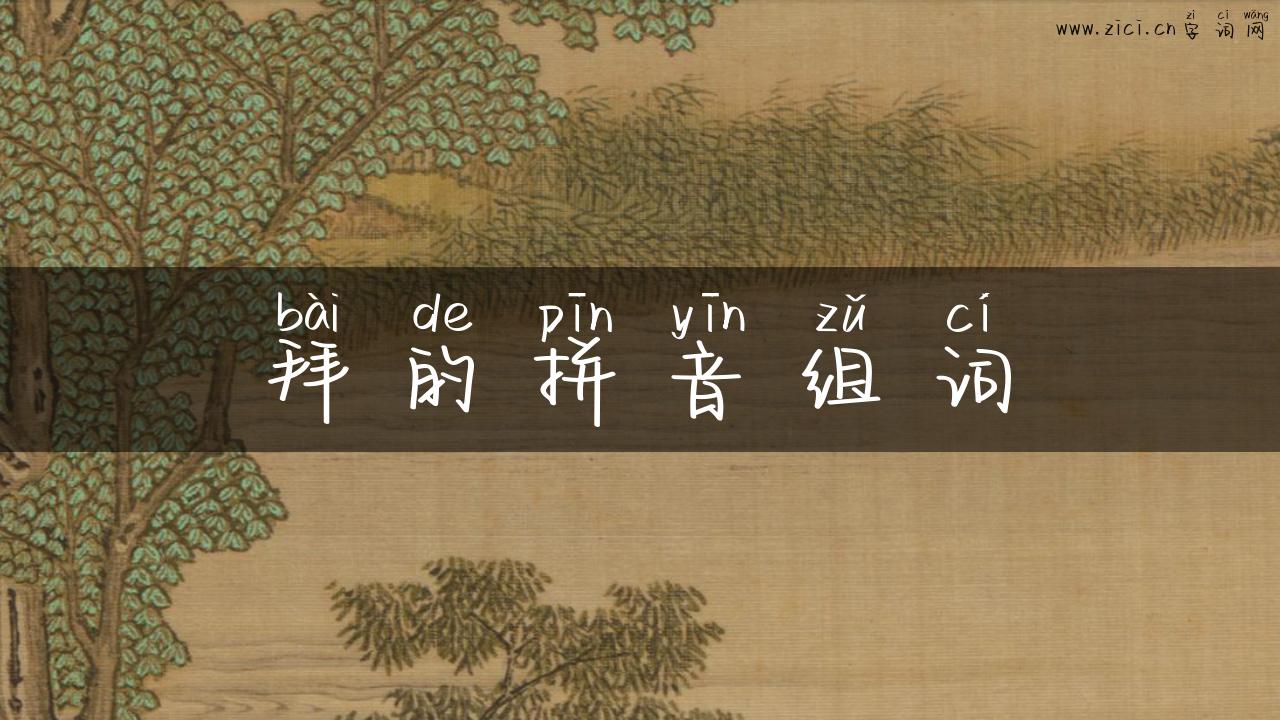 zì cí wǎng
www.zici.cn字词网
bài de pīn yīn zǔ cí
拜的拼音组词